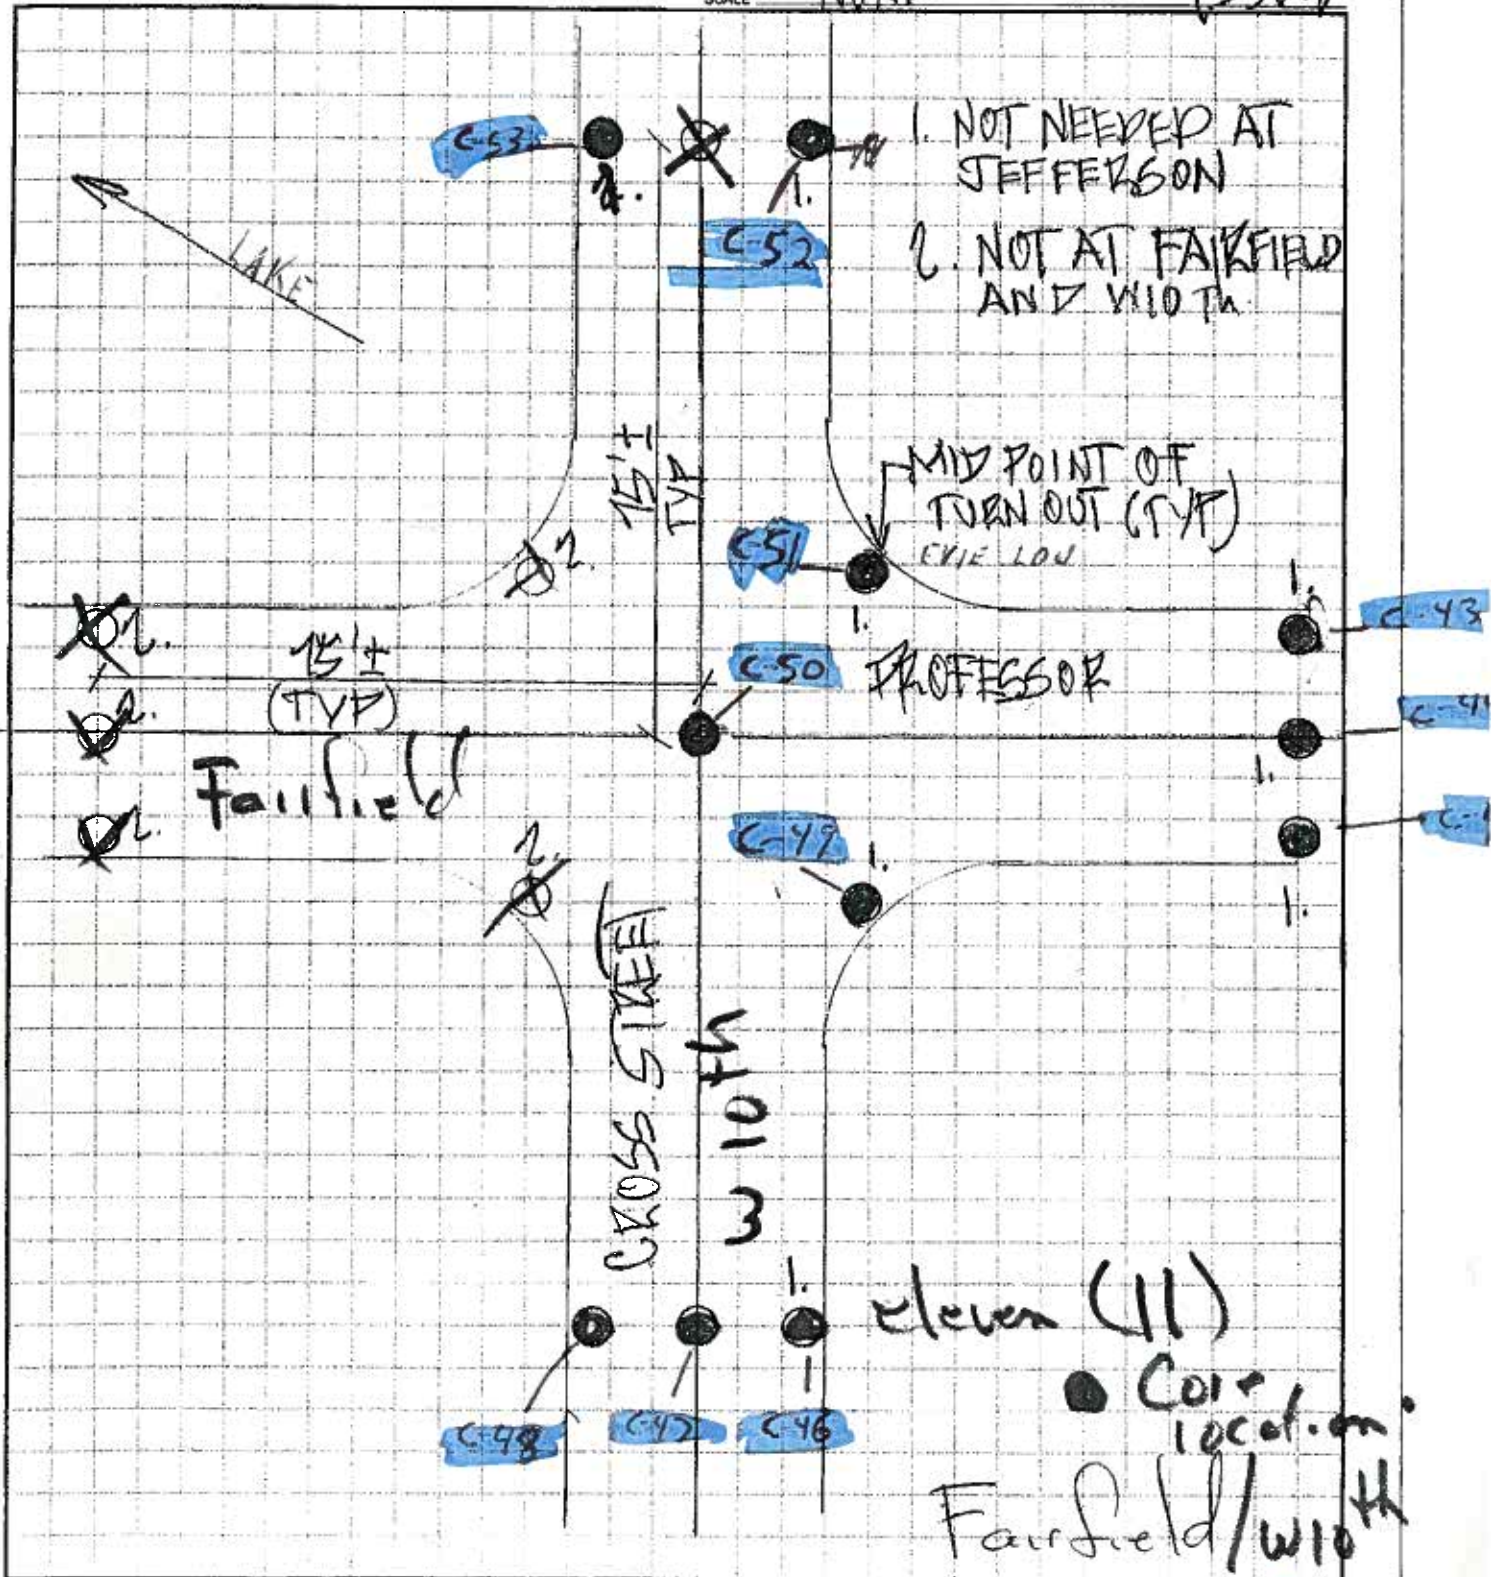 SCALE
C-53
1. NOT NEEDED AT
JEFFERSON
1.
C-52
2. NOT AT FAIRFIELD
AND W10Th
LAKE
15'±
TYP
MID POINT OF
TURN OUT (TYP)
2.
C-51
1.
1.
C-43
2.
15'±
(TYP)
C-50
PROFESSOR
2.
C-4
1.
Fairfield
2.
C-49
1.
C-
2.
1.
CROSS STREET
W 10th
1.
eleven (11)
Core
location
C-48
C-47
C-46
Fairfield/W10th